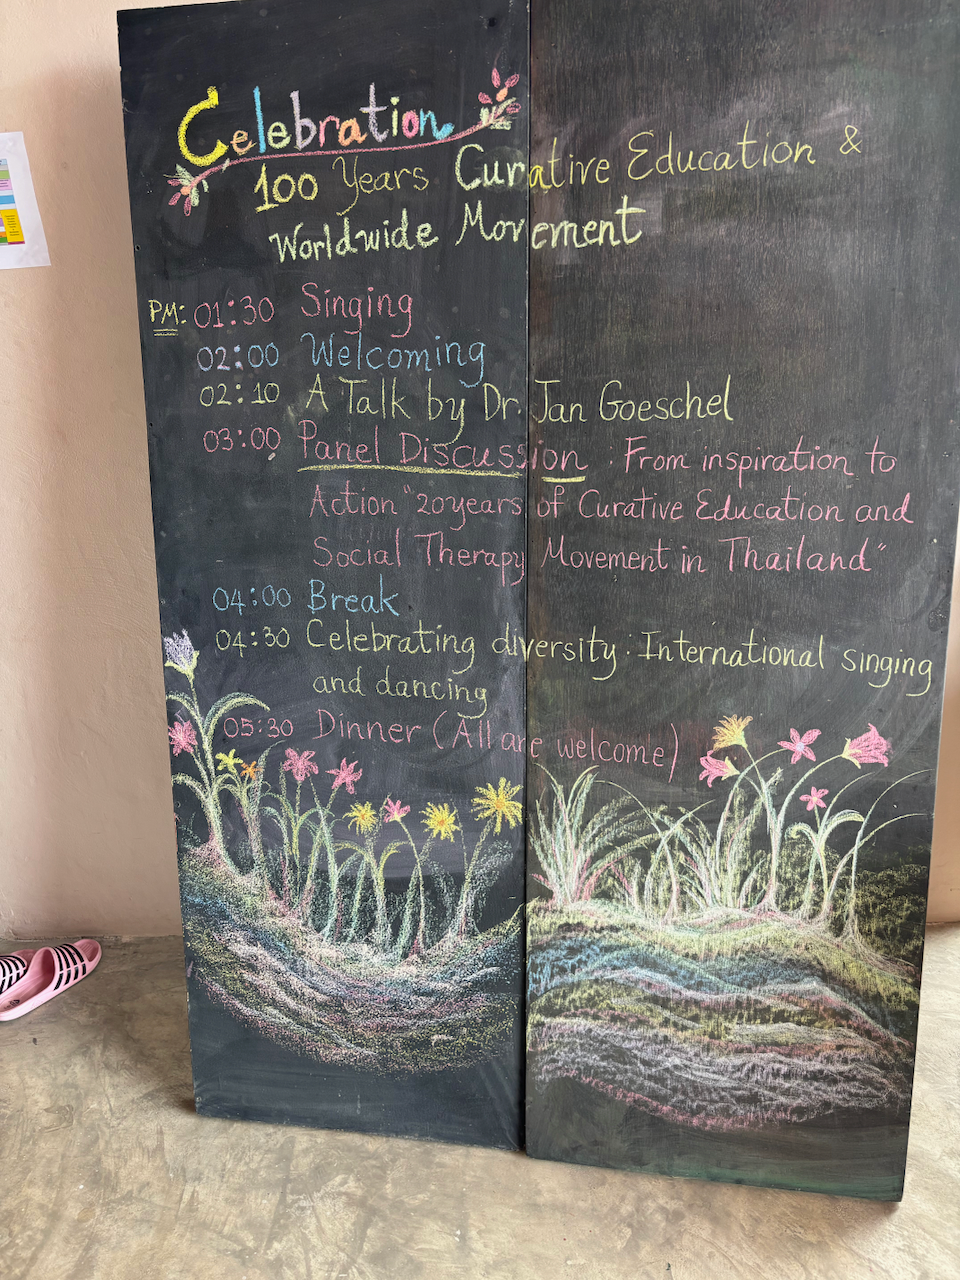 Celebration
100 Years Curative Education &
Worldwide Movement
PM: 01:30 Singing
02:00 Welcoming
02:10 A Talk by Dr. Jan Goeschel
03:00 Panel Discussion : From inspiration to
Action "20years of Curative Education and
Social Therapy Movement in Thailand"
04:00 Break
04:30 Celebrating diversity : International singing
and dancing
05:30 Dinner (All are welcome)